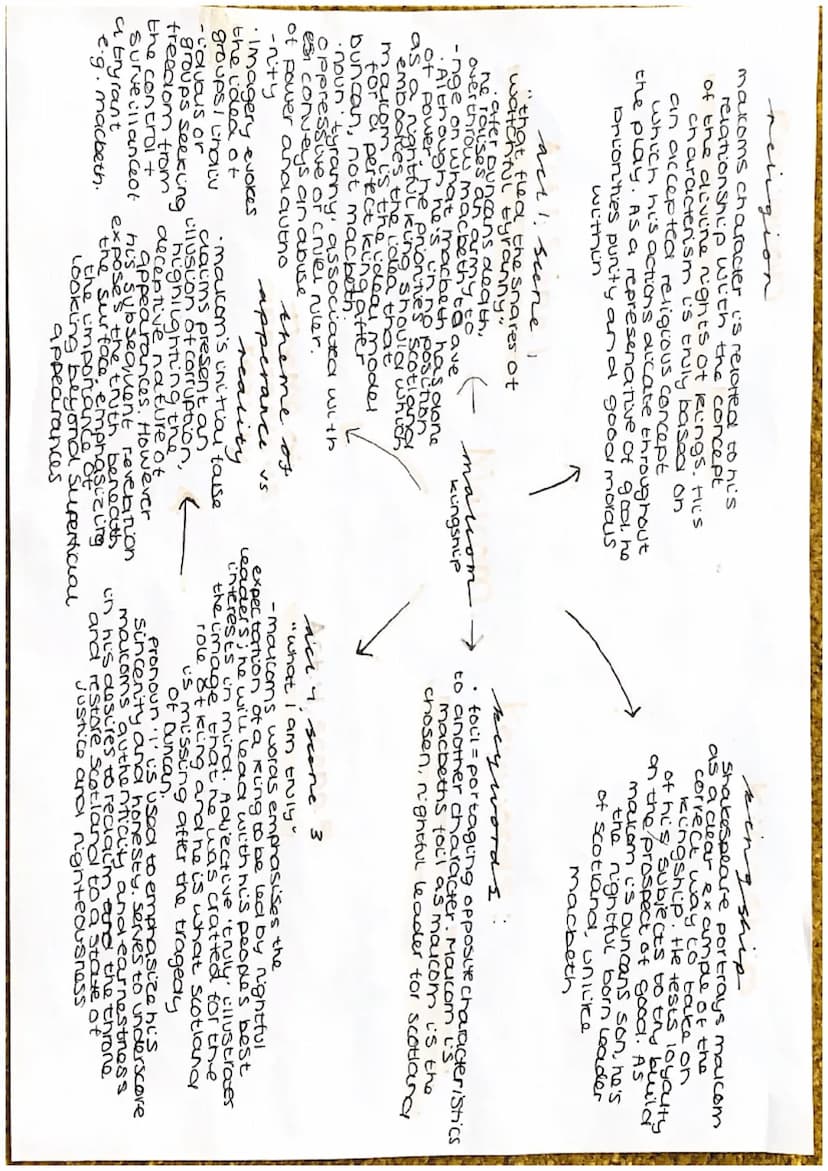 religion
malcoms character is related to his
relationship with the concept
of the divine rights of kings. His
characterism is truly based on
an accepted religious concept
which his actions dicate throughout
the play. As a represenative of god, he
priorities purity and good morals
within
Act 1, scene 1
"that fled the snares of
watchful tyranny"
· after Duncans death,
he raises an army to
overthrow macbeth to ave
-nge on what macbeth has done
. Although he's in no position
of power, he priorities Scotland
as a rightful king should which
embodies the idea that
malcom is the ideal model
for a perfect king after
Duncan, not macbeth.
· noun 'tyranny' associated with
oppressive or cruel ruler.
esi conveys an abuse
of power and autho
-rity
· Imagery evokes
the idea of
groups / indiv
-iduals or
groups seeking
freedom from
the control +
surveillance of
a tyrant
e.g. macbeth.
malcom
kingship
theme of
apperance vs
reality
· malcom's initial false
claims present an
illusion of corruption,
highlighting the
deceptive nature of
appearances. However
his subsequent revelation
exposes the truth beneath
the surface, emphasizing
the importance of
looking beyond superficial
appearances
kingship
Shakespeare portrays malcom
as a clear example of the
correct way to take on
kingship. He tests loyalty
of his subjects to try build
on the prospect of good. As
malcom is Duncans son, he's
the rightful born leader
of Scotland, unlike
macbeth
keywords :
· foil = portaging opposite characteristics
to another character. Malcom is
macbeths foil as malcom is the
chosen, rightful leader for scotland
Act 4, scene 3
"what I am truly"
- malcoms words emphasises the
expectation of a king to be led by rightful
leaders; he will lead with his people's best
interests in mind. Adjective 'truly' illustrates
the image that he was crafted for the
role of king and he is what Scotland
is missing after the tragedy
of Duncan.
pronoun 'I' is used to emphasize his
sincerity and honesty. Serves to underscore
malcoms authenticity and earnestness
in his desires to reclaim and the throne
and restore Scotland to a state of
justice and righteousness